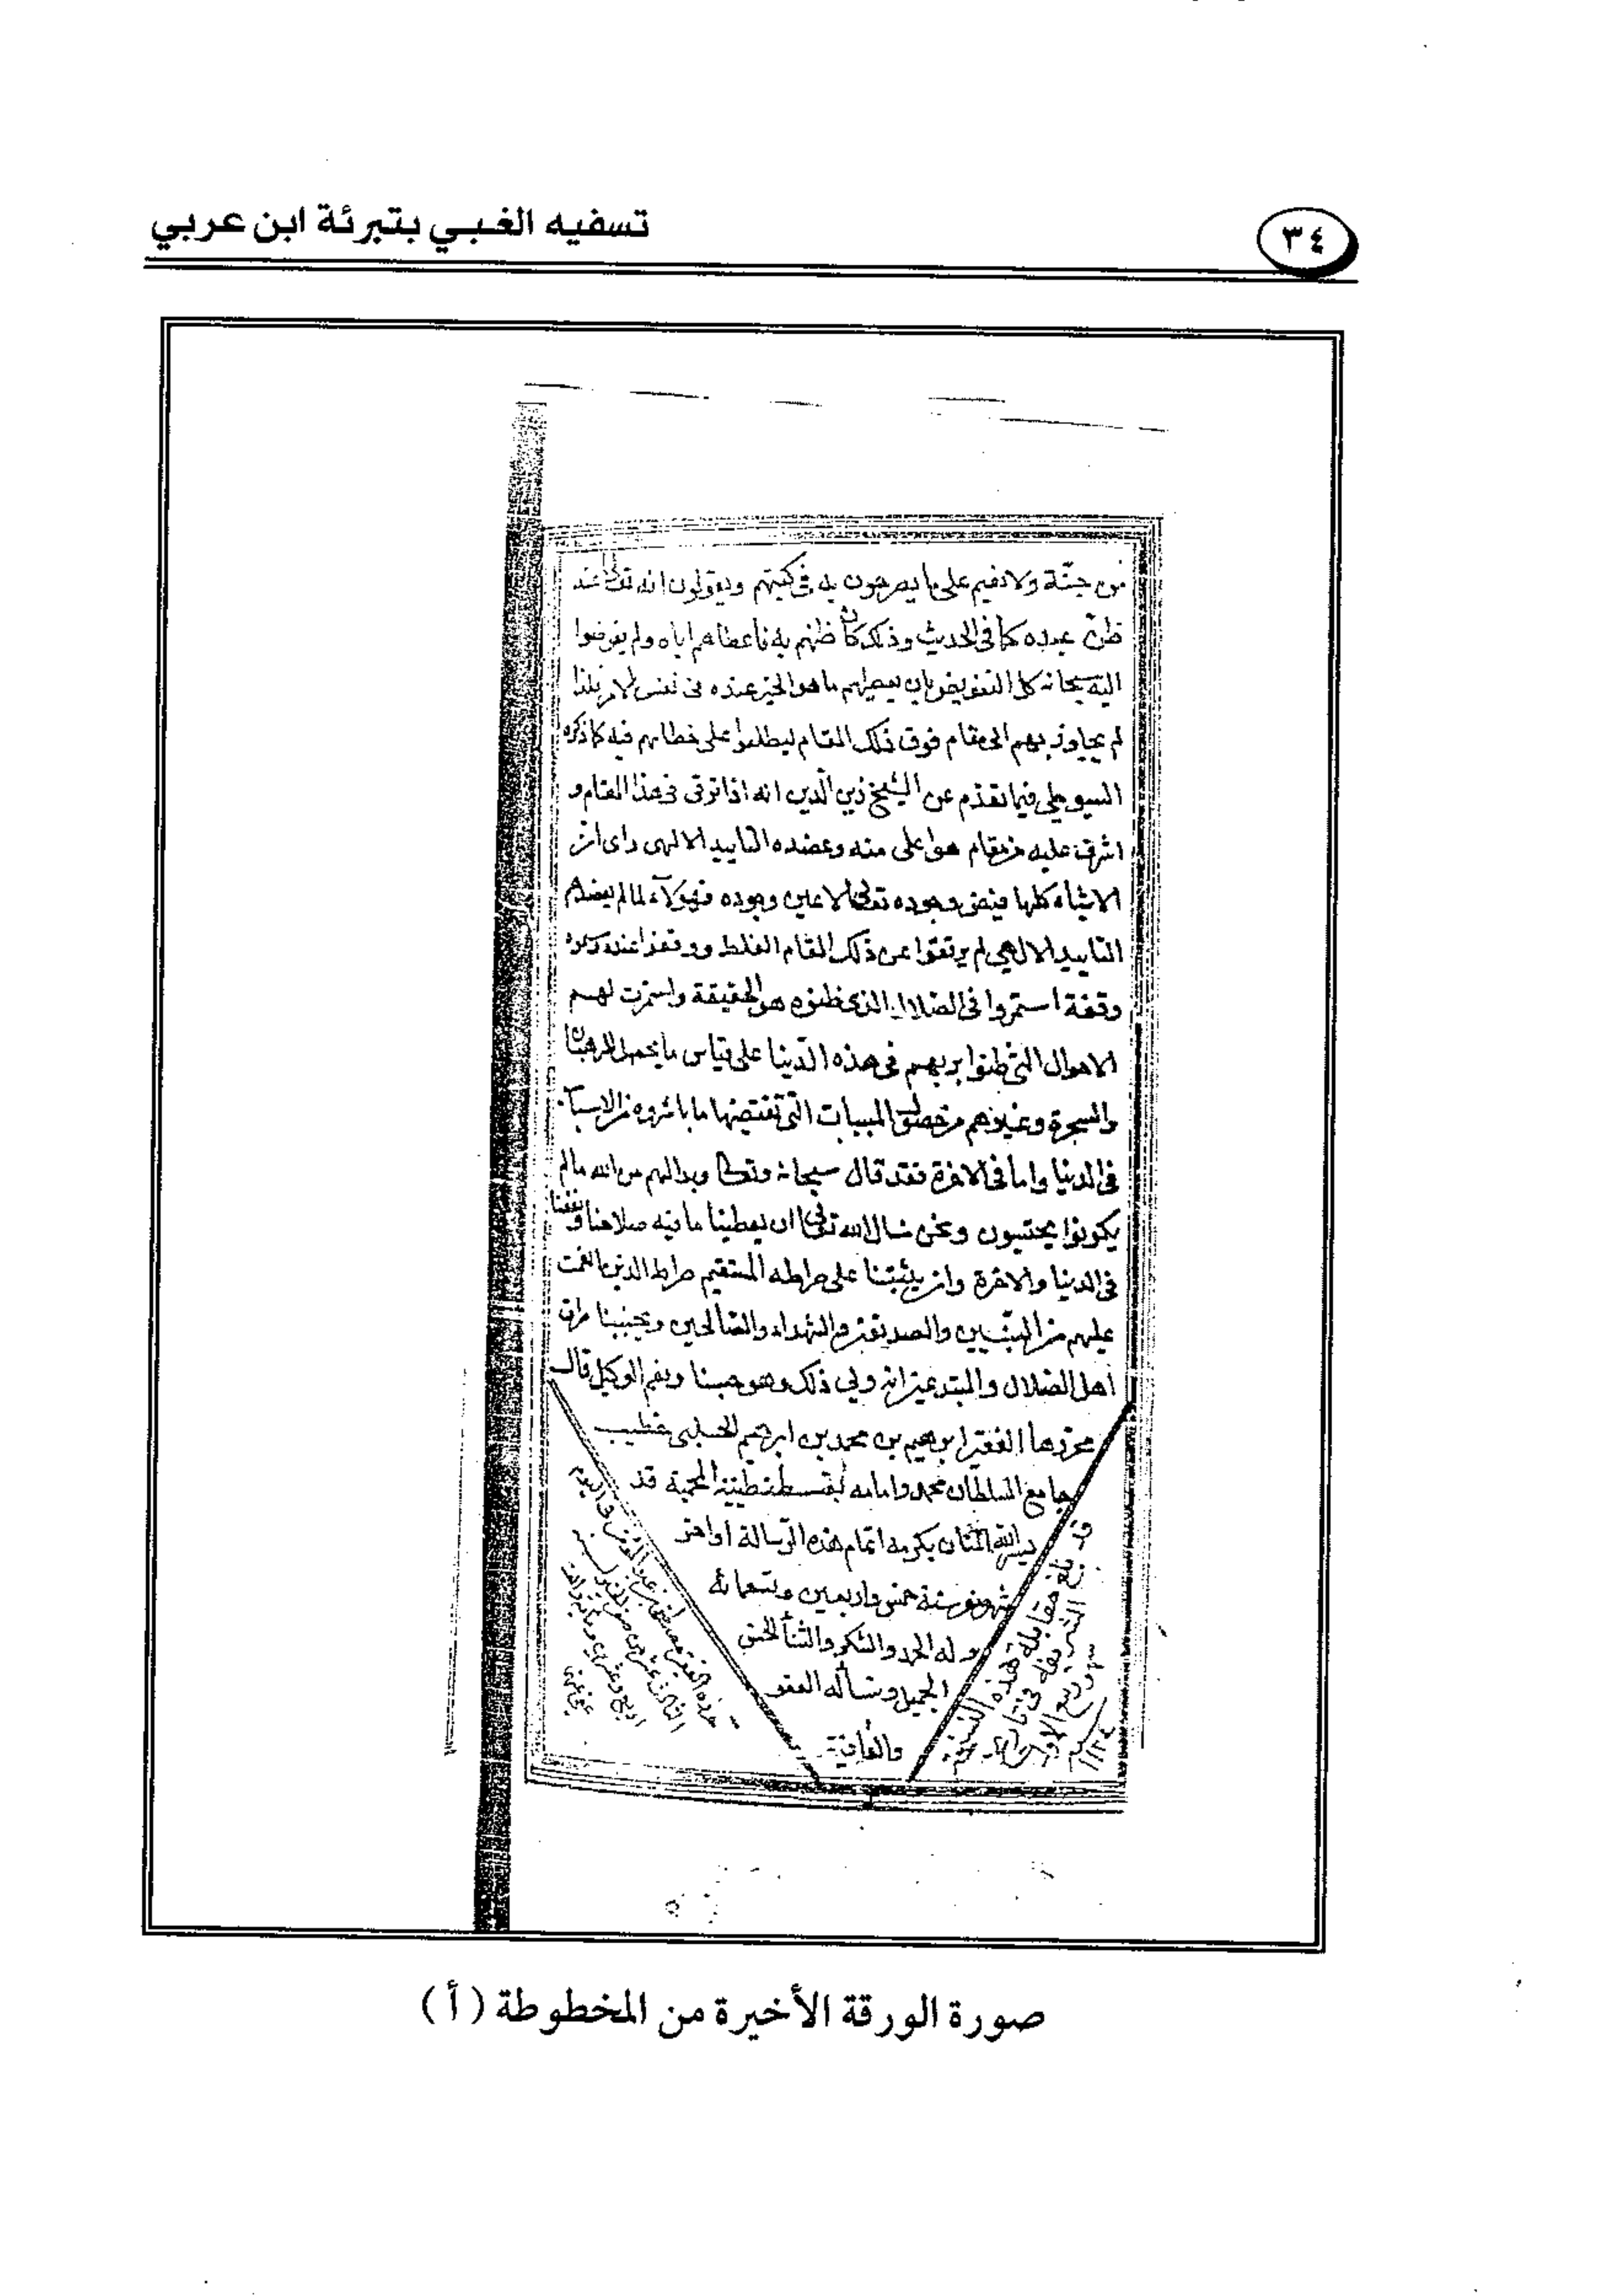 ٣٤
تسفيه الغبي بتبرئة ابن عربي
من جنة ولا نعيم على ما يصرحون به في كتبهم ويقولون انه تعالى عند
ظن عبده كما في الحديث وذلك كان ظنهم به فاعطاهم اياه ولم يفوضوا
اليه سبحانه كل التفويض بان يعطيهم ما هو الخير عنده في نفس الامر فلذا
لم يجاوز بهم الى مقام فوق ذلك المقام ليطلعوا على خطائهم فيه كما ذكره
السيوطي فيما تقدم عن الشيخ زين الدين انه اذا ترقى في هذا المقام و
اشرف عليه من مقام هو اعلى منه وعضده التأييد الالهى راى ان
الاشياء كلها فيض وجوده تعالى لا عين وجوده فهؤلآء لما لم يعضدهم
التأييد الالهي لم يرتقوا عن ذلك المقام الغلط ووقفوا عنده
وقفة استمروا في الضلال الذي ظنوه هو الحقيقة واستمرت لهم
الاحوال التي ظنوا بربهم في هذه الدنيا على قياس ما يحصل للرهبان
والسحرة وغيرهم من حصول المسببات التي تقتضيها ما باشروه من الاسباب
في الدنيا واما في الاخرة فقد قال سبحانه وتعالى وبدا لهم من الله ما لم
يكونوا يحتسبون ونحن نسال الله تعالى ان يعطينا ما فيه صلاحنا ونفعنا
في الدنيا والاخرة وان يثبتنا على صراطه المستقيم صراط الذين انعمت
عليهم من النبيين والصديقين والشهداء والصالحين ويجنبنا طرق
اهل الضلال والمبتدعين انه ولي ذلك وهو حسبنا ونعم الوكيل قال
محررها الفقير ابرهيم بن محمد بن ابرهيم الحلبي خطيب
جامع السلطان محمد وامامه بقسطنطينية المحمية قد
يسر الله المنان بكرمه اتمام هذه الرسالة اواخر
شهر صفر سنة خمس واربعين وتسعمائة
وله الحمد والشكر والثنأ الحسن
الجميل ونسأله العفو
والعافية
قد بلغ مقابلة هذه النسخة
الشريفة في تاريخ
ربيع الاول
سنة ١١٢٤
حرره الفقير مصطفى بن في اليوم
الثاني عشر من صفر
اربع وعشرين ومائة والف
عفي عنه
صورة الورقة الأخيرة من المخطوطة (أ)